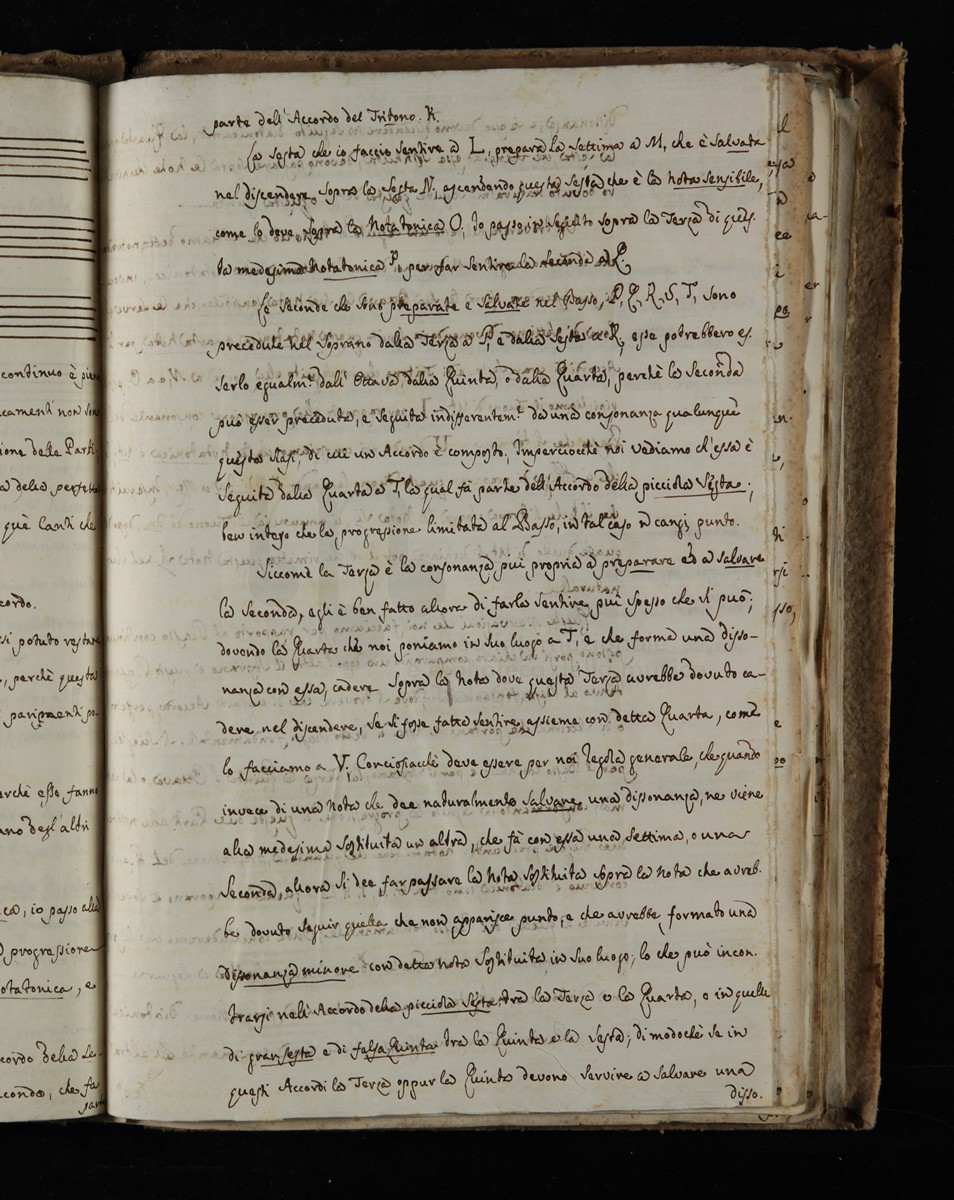 parte dell' Accordo del Tritono. K.
La Sesta che io faccio sentire a L, prepara la Settima a M, che è Salvata
nel discendere sopra la Sesta N, ascendendo questa Sesta che è la nota sensibile,
come lo deve sopra la Notatonica O, Io passo in seguito sopra la Terza di ques-
ta medesima Notatonica P, per far sentire la seconda a Q.
Le Seconde che sono preparate e Salvate nel Basso, P, Q, R, S, T, sono
precedute nel Soprano dalla Terza a P, e dalla Sesta a R, esse potrebbero es-
serlo egualm.e dall' Ottava, dalla Quinta, o dalla Quarta, perchè la Seconda
può esser preceduta, e seguita indifferentem.e da una consonanza qualunque
questa siasi, di cui un Accordo è composto; Imperciocchè noi vediamo ch'essa è
seguita dalla Quarta a T, la qual fà parte dell' Accordo della picciola Sesta;
ben inteso che la progressione limitata al Basso, in tal caso ñ cangi punto.
Siccome la Terza è la consonanza più propria a preparare ed a salvare
la seconda, egli è ben fatto allora di farla sentire più spesso che si può;
dovendo la Quarta che noi poniamo in suo luogo a T, e che forma una disso-
nanza con essa, cadere sopra la nota dove questa Terza avrebbe dovuto ca-
dere nel discendere, se si fosse fatta sentire assieme con detta Quarta, come
lo facciamo a V, Conciosiacchè deve essere per noi Regola generale, che quando
invece di una nota che dee naturalmente salvare una dissonanza, ne viene
alla medesima sostituita un altra, che fà con essa una Settima, o una
Seconda, allora si dee far passare la nota sostituita sopra la nota che avreb-
be dovuto seguir quella che non apparisce punto, e che avrebbe formato una
dissonanza minore con detta nota sostituita in suo luogo; lo che può incon-
trarsi nell' Accordo della picciola Sesta tra la Terza e la Quarta, o in quelli
di gran sesta e di falsa Quinta tra la Quinta e la Sesta; di modochè se in
questi Accordi la Terza oppur la Quinta devono servire a salvare una
disso-